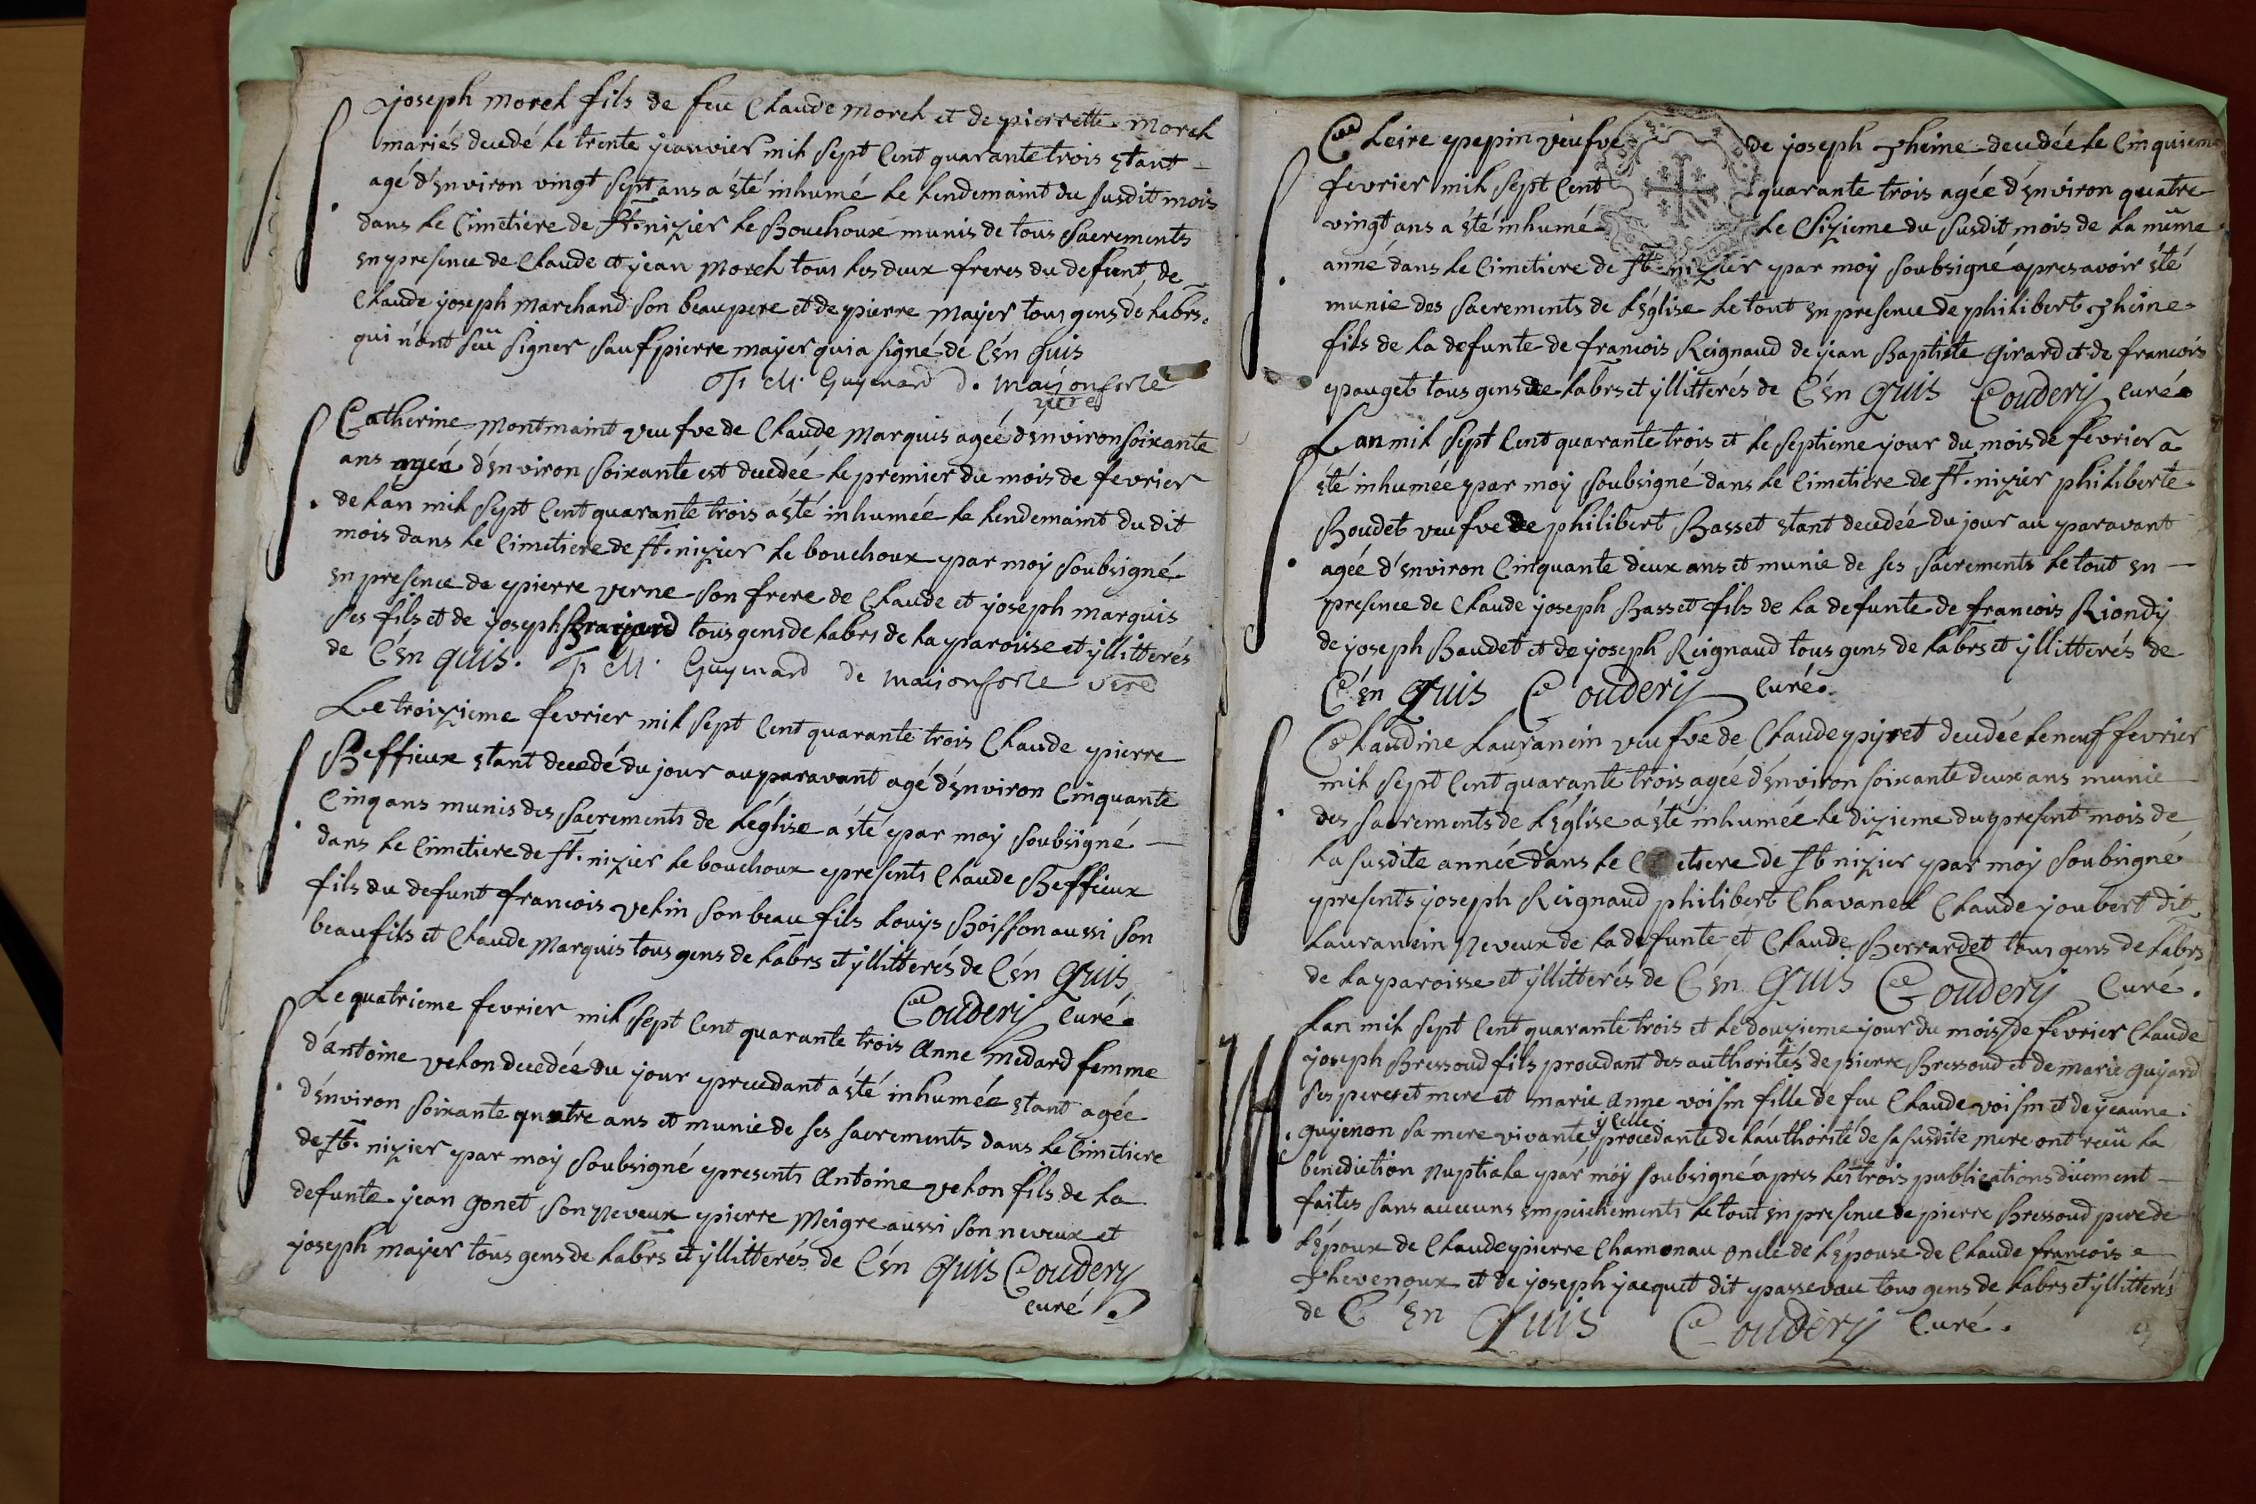 joseph morel fils de feu Claude morel et de pierrette morel
mariés decedé le trente jeanvier mil sept Cent quarante trois étant
agé d'environ vingt sept ans a été inhumé le lendemaint du susdit mois
dans le Cimetiere de st. nizier le Bouchoux munis de tous sacrements
en presence de Claude et jean morel tous les deux freres du defunt, de
Claude joseph marchand son beaupere et de pierre mayer tous gens de labrs.
qui n'ont sçu signer sauf pierre mayer qui a signé de C'én quis
Guyenard de maisonforte
vire
Catherine montmaint veufve de Claude marquis ageé d'environ soixante
ans ageé d'environ soixante est decedeé le premier du mois de fevrier
de l'an mil sept Cent quarante trois a été inhumée le lendemaint du dit
mois dans le Cimetiere de st. nizier le bouchoux par moy soubsigné
en presence de pierre verne son frere de Claude et joseph marquis
ses fils et de joseph Brayard tous gens de labrs de la paroisse et yllitterés
de C'én quis. Guyenard de maisonforte vire
Le troizieme fevrier mil sept Cent quarante trois Claude pierre
Beffieux étant decedé du jour auparavant agé d'environ Cinquante
Cinq ans munis des sacrements de l'église a été par moy soubsigné
dans le Cimetiere de st. nizier le bouchoux presents Claude Beffieux
fils du defunt francois velin son beau fils Louys Boisson aussi son
beaufils et Claude marquis tous gens de labrs et yllitterés de C'én quis
Coudery Curé
Le quatrieme fevrier mil sept Cent quarante trois Anne medard femme
d'antoine velon decedée du jour precedant a été inhumée étant agée
d'environ soixante quatre ans et munie de ses sacrements dans le Cimetiere
de st. nizier par moy soubsigné presents Antoine velon fils de la
defunte jean gonet son neveux pierre meigre aussi son neveux et
joseph mayer tous gens de labrs et yllitterés de C'én quis Coudery
curé.
Cleire pepin veufve de joseph Theine decedée le Cinquieme
fevrier mil sept Cent quarante trois agée d'environ quatre
vingt ans a été inhumé le Sizieme du susdit mois de la même
anné dans le Cimetiere de st. nizier par moy soubsigné apres avoir été
munie des sacrements de l'église le tout en presence de philibert Theine
fils de la defunte de francois Reignaud de jean Baptiste Girard et de francois
pauget tous gens de labrs et yllitterés de C'én quis Coudery curé
Lan mil sept Cent quarante trois et le septieme jour du mois de fevrier a
été inhumée par moy soubsigné dans le Cimetiere de st. nizier philiberte
Boudet veufve de philibert Basset étant decedée du jour au paravant
agée d'environ Cinquante deux ans et munie de ses sacrements le tout en
presence de Claude joseph Basset fils de la defunte de francois Riondy
de joseph Baudet et de joseph Reignaud tous gens de labrs et yllitterés de
C'én quis Coudery curé.
Claudine Laurancin veufve de Claude pyret decedée le neuf fevrier
mil sept Cent quarante trois agée d'environ soixante deux ans munie
des sacrements de l'église a été inhumée le dizieme du present mois de
la susdite année dans le C etiere de st nizier par moy soubsigné
presents joseph Reignaud philibert Chavanel Claude joubert dit
Laurancin neveux de la defunte et Claude Berrardet tous gens de labrs
de la paroisse et yllitterés de C'én quis Coudery Curé.
Lan mil sept Cent quarante trois et le douzieme jour du mois de fevrier Claude
joseph Bressoud fils procedant des authorités de pierre Bressoud et de marie guyard
ses peres et mere et marie Anne voisin fille de feu Claude voisin et de jeanne
guyenon sa mere vivante ycelle procedante de l'authorité de sa susdite mere ont reçü la
benediction nuptiale par moy soubsigné apres les trois publications düement
faites sans aucuns empeichements le tout en presence de pierre Bressoud pere de
l'époux de Claude pierre Chamonau oncle de l'épouse de Claude francois
Thevenoux et de joseph jacquet dit passevau tous gens de labrs et yllitterés
de C'én quis Coudery Curé.